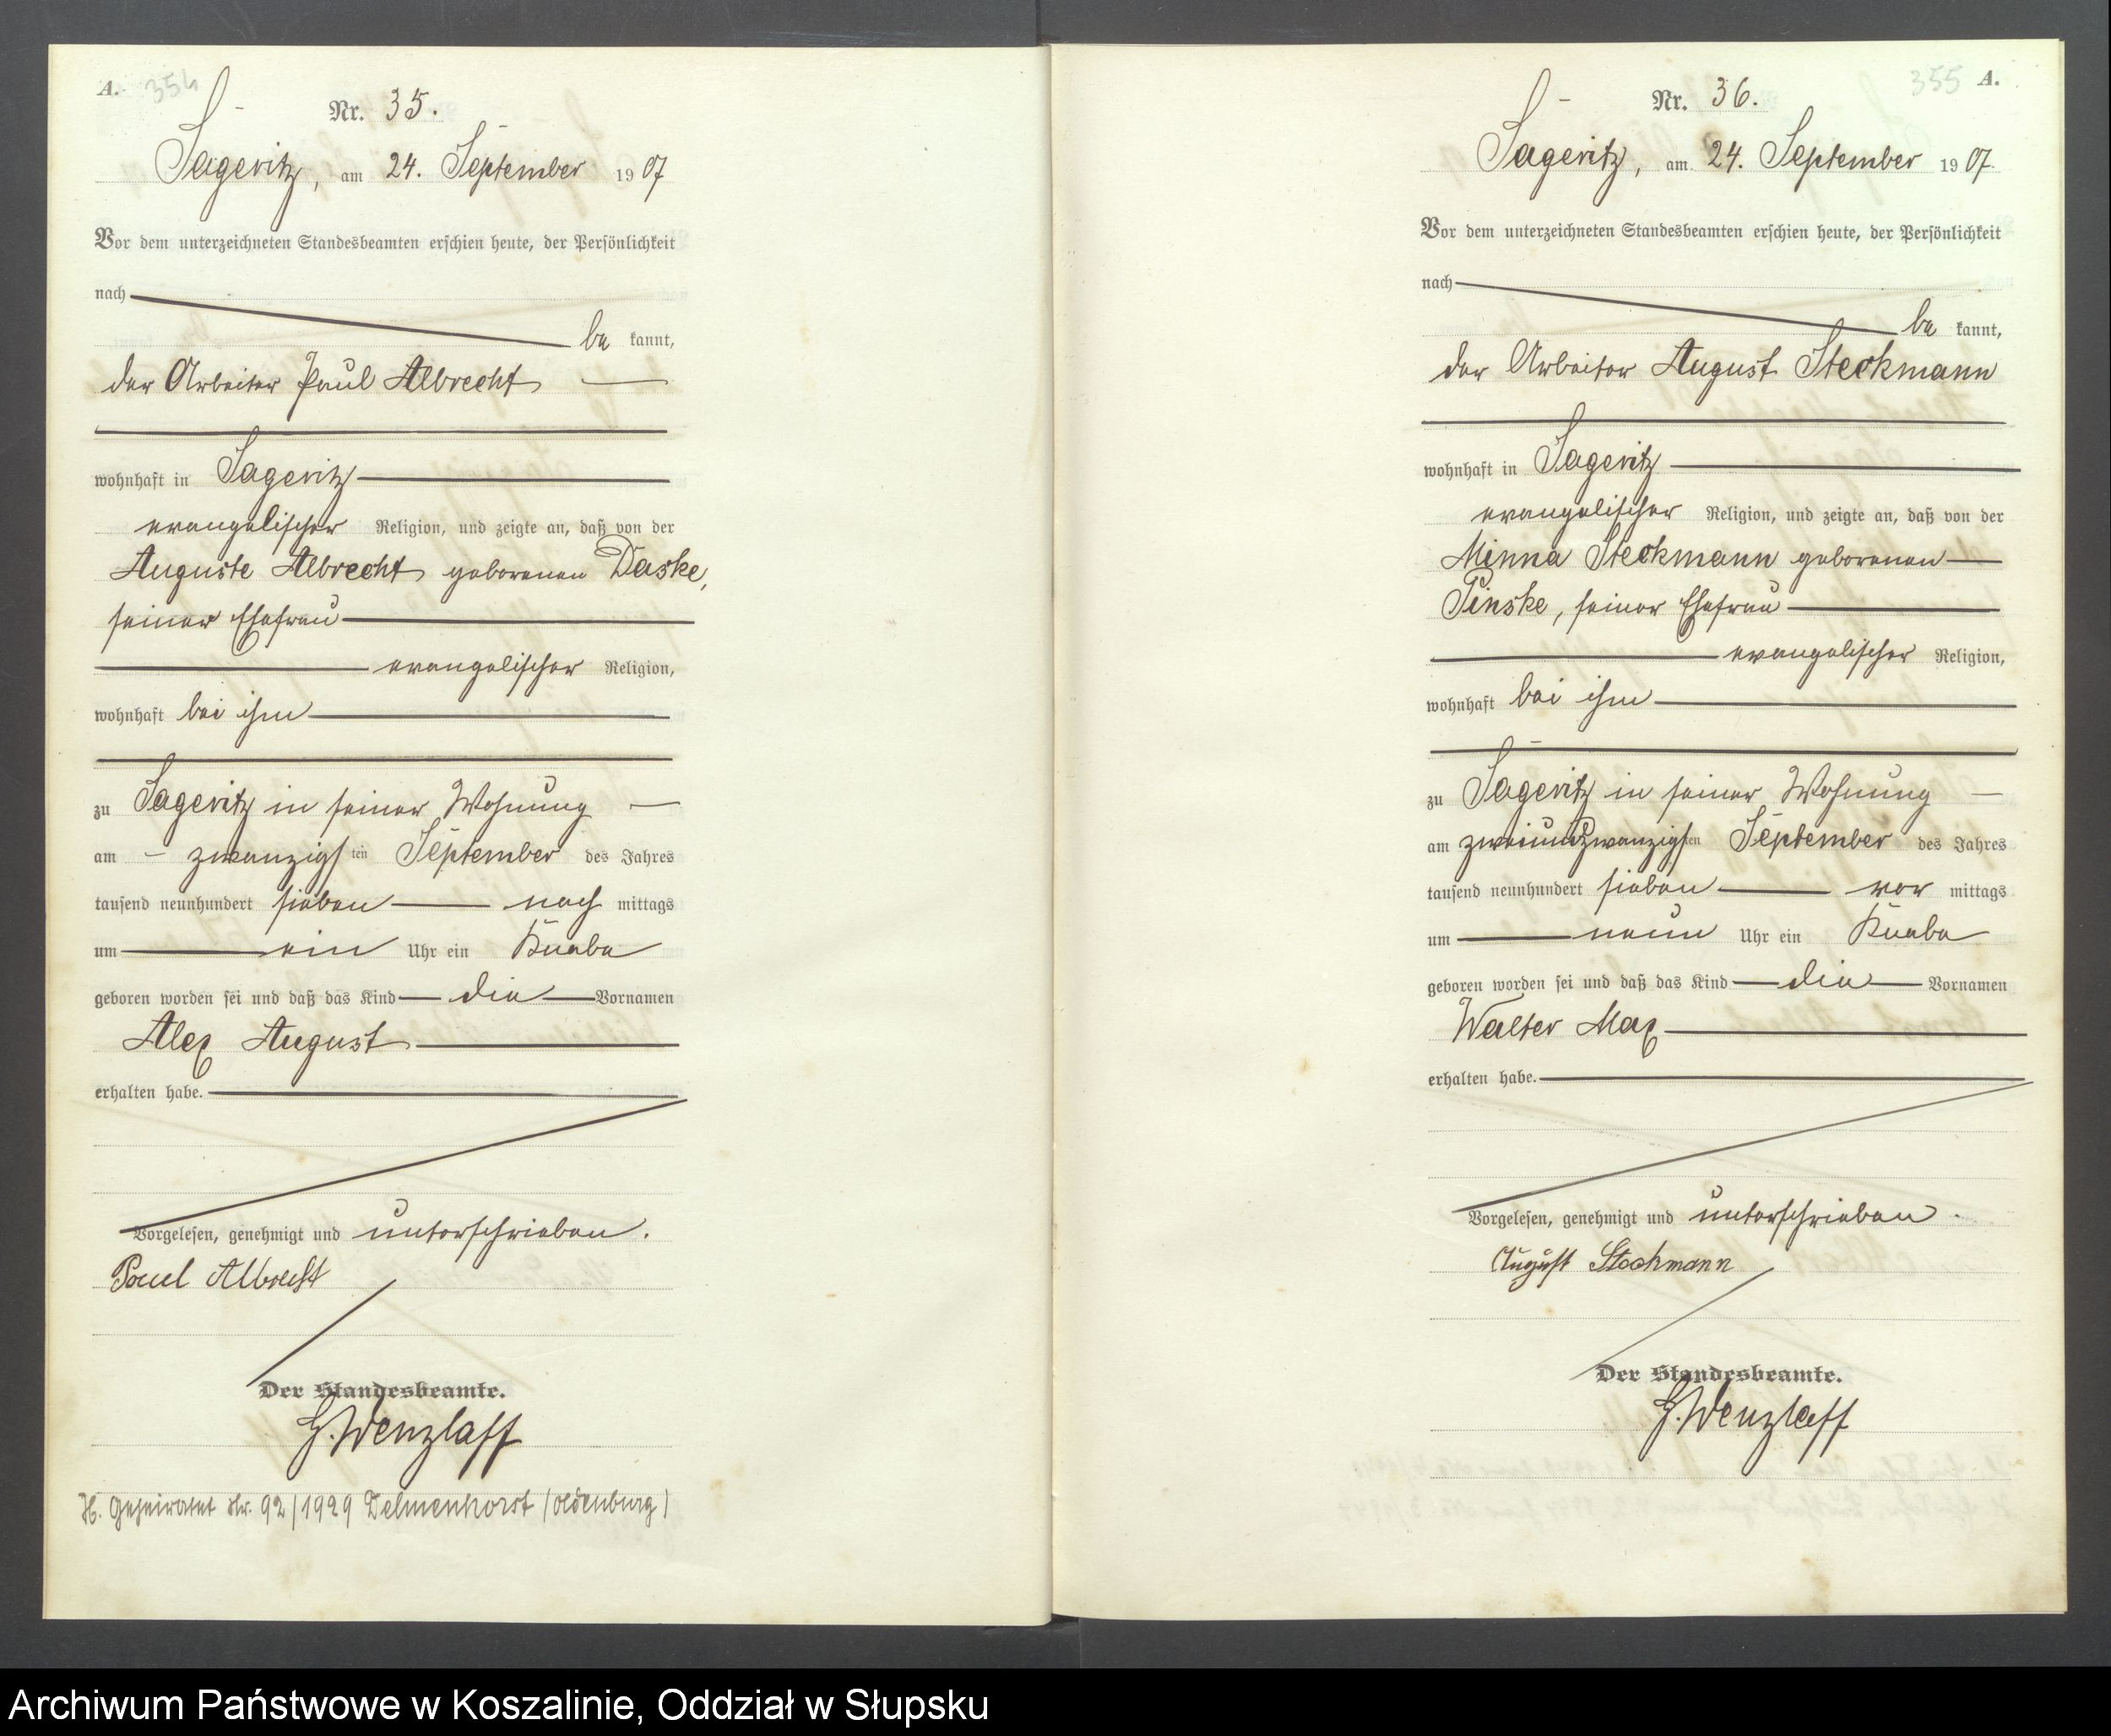 A. 354
Nr. 35.
Sageritz, am 24. September 1907
Vor dem unterzeichneten Standesbeamten erschien heute, der Persönlichkeit
nach
be kannt,
der Arbeiter Paul Albrecht
wohnhaft in Sageritz
evangelischer Religion, und zeigte an, daß von der
Auguste Albrecht geborenen Daske,
seiner Ehefrau
evangelischer Religion,
wohnhaft bei ihm
zu Sageritz in seiner Wohnung
am zwanzigsten September des Jahres
tausend neunhundert sieben nach mittags
um ein Uhr ein Knabe
geboren worden sei und daß das Kind die Vornamen
Alex August
erhalten habe.
Vorgelesen, genehmigt und unterschrieben.
Paul Albrecht
Der Standesbeamte.
G. Wenzlaff
H. Geheiratet Nr. 92/1929 Delmenhorst (Oldenburg)
355 A.
Nr. 36.
Sageritz, am 24. September 1907.
Vor dem unterzeichneten Standesbeamten erschien heute, der Persönlichkeit
nach
be kannt,
der Arbeiter August Steckmann
wohnhaft in Sageritz
evangelischer Religion, und zeigte an, daß von der
Minna Steckmann geborenen
Pinske, seiner Ehefrau
evangelischer Religion,
wohnhaft bei ihm
zu Sageritz in seiner Wohnung
am zweiundzwanzigsten September des Jahres
tausend neunhundert sieben vor mittags
um neun Uhr ein Knabe
geboren worden sei und daß das Kind die Vornamen
Walter Max
erhalten habe.
Vorgelesen, genehmigt und unterschrieben.
August Steckmann
Der Standesbeamte.
G. Wenzlaff
Archiwum Państwowe w Koszalinie, Oddział w Słupsku